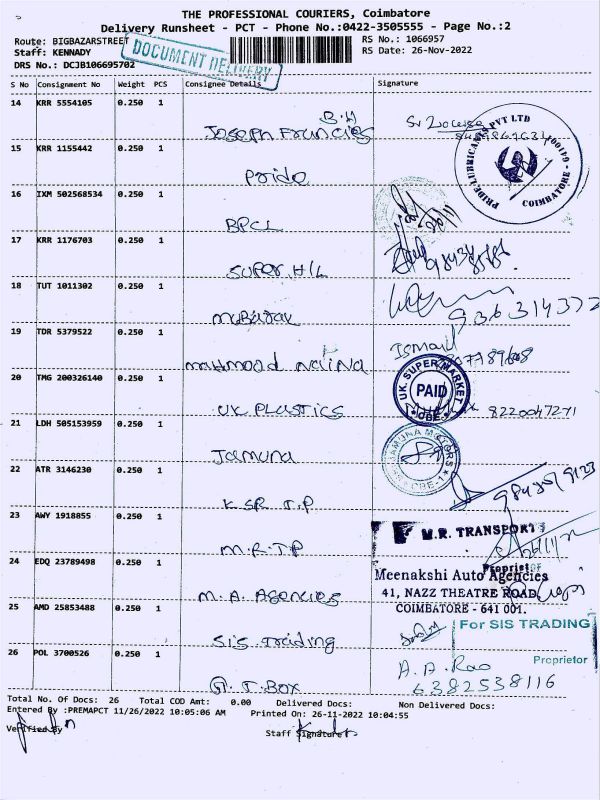 THE PROFESSIONAL COURIERS, Coimbatore
Delivery Runsheet - PCT - Phone No.:0422-3505555 - Page No.:2
Route: BIGBAZARSTREET
RS No.: 1066957
Staff: KENNADY
RS Date: 26-Nov-2022
DRS No.: DCJB106695702
DOCUMENT DELIVERY
S No Consignment No Weight PCS Consignee Details Signature
14 KRR 5554105 0.250 1
B.H
Joseph Francies
15 KRR 1155442 0.250 1
Pride
PRIDE LUBRICANTS PVT LTD
COIMBATORE - 641001
16 IXM 502568534 0.250 1
BPCL
17 KRR 1176703 0.250 1
SUPER H/L
18 TUT 1011302 0.250 1
19 TDR 5379522 0.250 1
mahmood Nalina
Ismail
20 TMG 200326140 0.250 1
UK PLASTICS
UK. SUPER MARKET
PAID
CBE
8220047271
21 LDH 505153959 0.250 1
Jamuna
JAMUNA MOTORS
CBE-1
22 ATR 3146230 0.250 1
KSR T.P
23 AWY 1918855 0.250 1
M.R.T.P
M.R. TRANSPORT
Proprietor
24 EDQ 23789498 0.250 1
M.A. Agencies
Meenakshi Auto Agencies
41, NAZZ THEATRE ROAD,
COIMBATORE - 641 001.
25 AMD 25853488 0.250 1
SIS Trading
For SIS TRADING
Proprietor
26 POL 3700526 0.250 1
A.T. BOX
A.A. Rao
6382538116
Total No. Of Docs: 26 Total COD Amt: 0.00 Delivered Docs: Non Delivered Docs:
Entered By :PREMAPCT 11/26/2022 10:05:06 AM Printed On: 26-11-2022 10:04:55
Verified By
Staff Signature